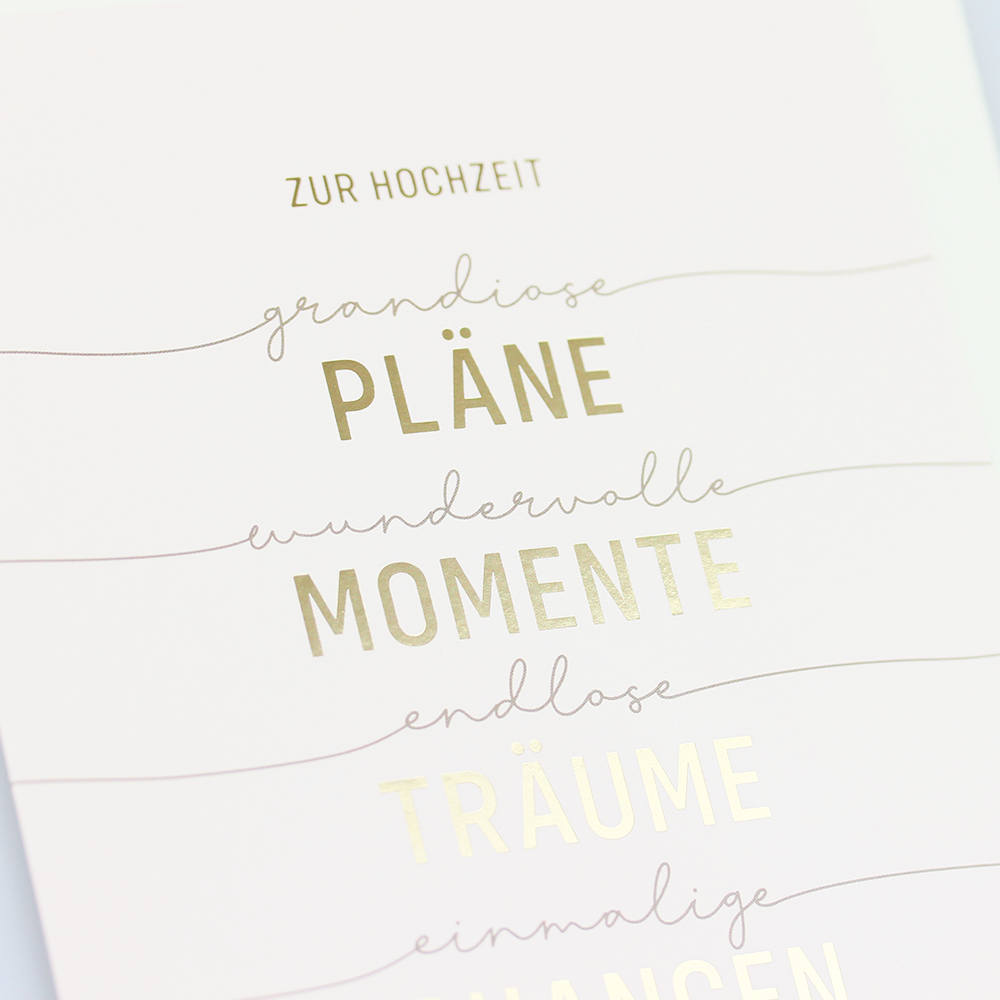 ZUR HOCHZEIT
grandiose
PLÄNE
wundervolle
MOMENTE
endlose
TRÄUME
einmalige
CHANCEN